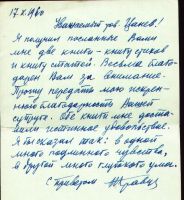 17.X.1960
Уважаемый тов. Цанев!
Я получил посланные Вами
мне две книги - книгу стихов
и книгу цитатей. Весьма благо-
дарен Вам за внимание.
Прошу передать мою искрен-
нюю благодарность Вашей
супруге. Обе книги мне доста-
вили истинное удовольствие.
Я бы сказал так: в одной
много подлинного чувства,
в другой много глубокого ума.
С приветом